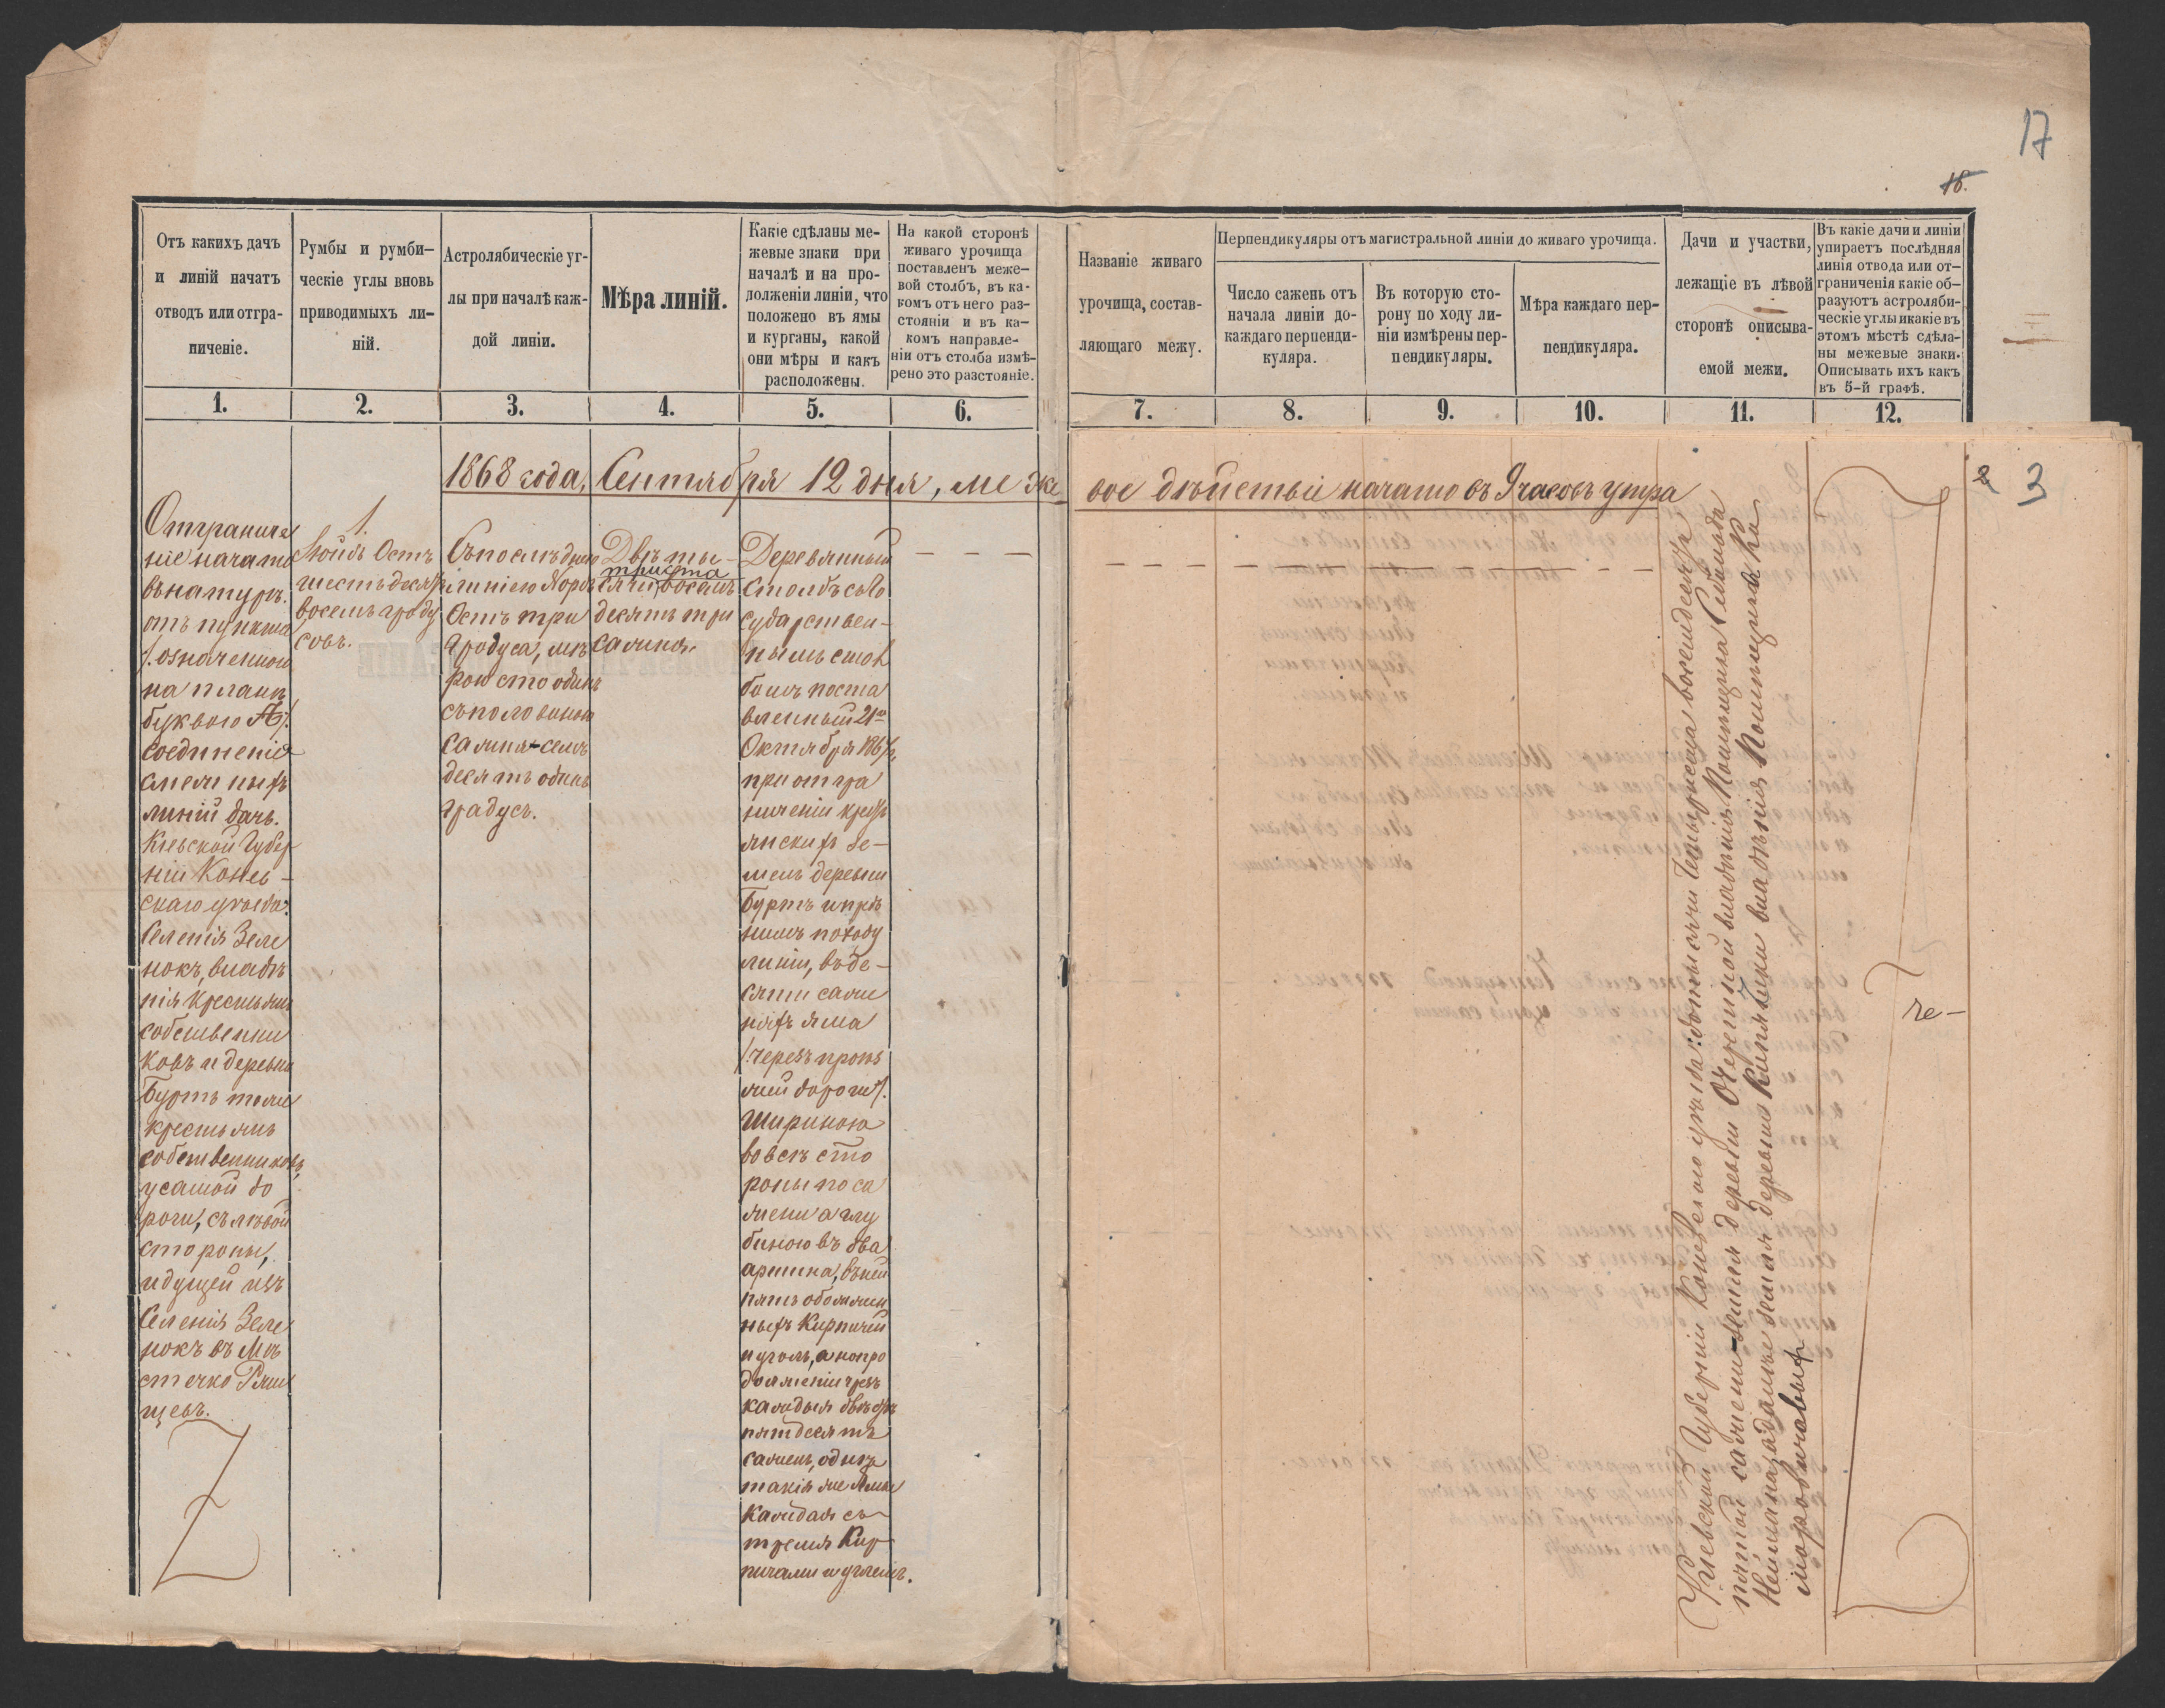 17
18.
Отъ какихъ дачъ
и линій начатъ
отводъ или отгра-
ниченіе.
Румбы и румби-
ческіе углы вновь
приводимыхъ ли-
ній.
Астролябическіе уг-
лы при началѣ каж-
дой линіи.
Мѣра линій.
Какіе сдѣланы ме-
жевые знаки при
началѣ и на про-
долженіи линіи, что
положено въ ямы
и курганы, какой
они мѣры и какъ
расположены.
На какой сторонѣ
живаго урочища
поставленъ меже-
вой столбъ, въ ка-
комъ отъ него раз-
стояніи и въ ка-
комъ направле-
ніи отъ столба измѣ-
рено это разстояніе.
Названіе живаго
урочища, состав-
ляющаго межу.
Перпендикуляры отъ магистральной линіи до живаго урочища.
Число сажень отъ
начала линіи до-
каждаго перпенди-
куляра.
Въ которую сто-
рону по ходу ли-
ніи измѣрены пер-
пендикуляры.
Мѣра каждаго пер-
пендикуляра.
Дачи и участки,
лежащіе въ лѣвой
сторонѣ описыва-
емой межи.
Въ какіе дачи и линіи
упираетъ послѣдняя
линія отвода или от-
граниченія какіе об-
разуютъ астроляби-
ческіе углы и какіе въ
этомъ мѣстѣ сдѣла-
ны межевые знаки.
Описывать ихъ какъ
въ 5-й графѣ.
1. 2. 3. 4. 5. 6. 7. 8. 9. 10. 11. 12.
1868 года, Сентября 12 дня, меже
вое дѣйствіе начато въ 9 часовъ утра
2 3
Отграниче
ніе начато
въ натурѣ.
отъ пункта
/. означеннаго
на планѣ
буквою А/.
соединенія
смежныхъ
линій дачъ.
Кіевской Губер
ніи Канев-
скаго уѣзда:
Селенія Зеле
нокъ, владѣ
нія Крестьянъ
собственни
ковъ и деревни
Буртъ тоже
крестьянъ
собственниковъ,
у самой до
роги, съ лѣвой
стороны,
идущей изъ
Селенія Зеле
нокъ въ Мѣ
стечко Ржи
щевъ.
1.
Зюйдъ Остъ
шестьдесятъ
восемь граду
совъ.
Съ послѣднею
линіею Нордъ
Остъ три
градуса, мѣ
рою сто одинъ
съ половиною
сажня - семь
десятъ одинъ
градусъ.
Двѣ ты-
триста
сячи восемь
десятъ три
сажня.
Деревянный
столбъ съ Го
сударствен-
нымъ
поста
вленный 21го
Октября 186
при отгра
ниченіи кресть
янскихъ зе-
мель деревни
Буртъ и при
немъ по ходу
линіи, въ де-
сяти саже
няхъ яма
/. черезъ проѣз
жей дороги/.
шириною
во всѣ сто
роны по са
жени а глу
биною въ два
аршина, въ ней
пять обозжен
ныхъ Кирпичей
и уголь, а на про
долженіи чрезъ
каждыя двѣсти
пятдесятъ
сажень, однѣ
такія же ямы
Каждая съ
тремя Кир
пичами и углемъ.
Кіевской Губерніи Каневскаго уѣзда: двѣ тысячи четыреста восемдесятъ
пятой сажени - земля деревни Очеретной владѣнія Помѣщика
на, а далѣе земля деревни Кипячки владѣнія Помѣщика Ка
маровичавыхъ
че-